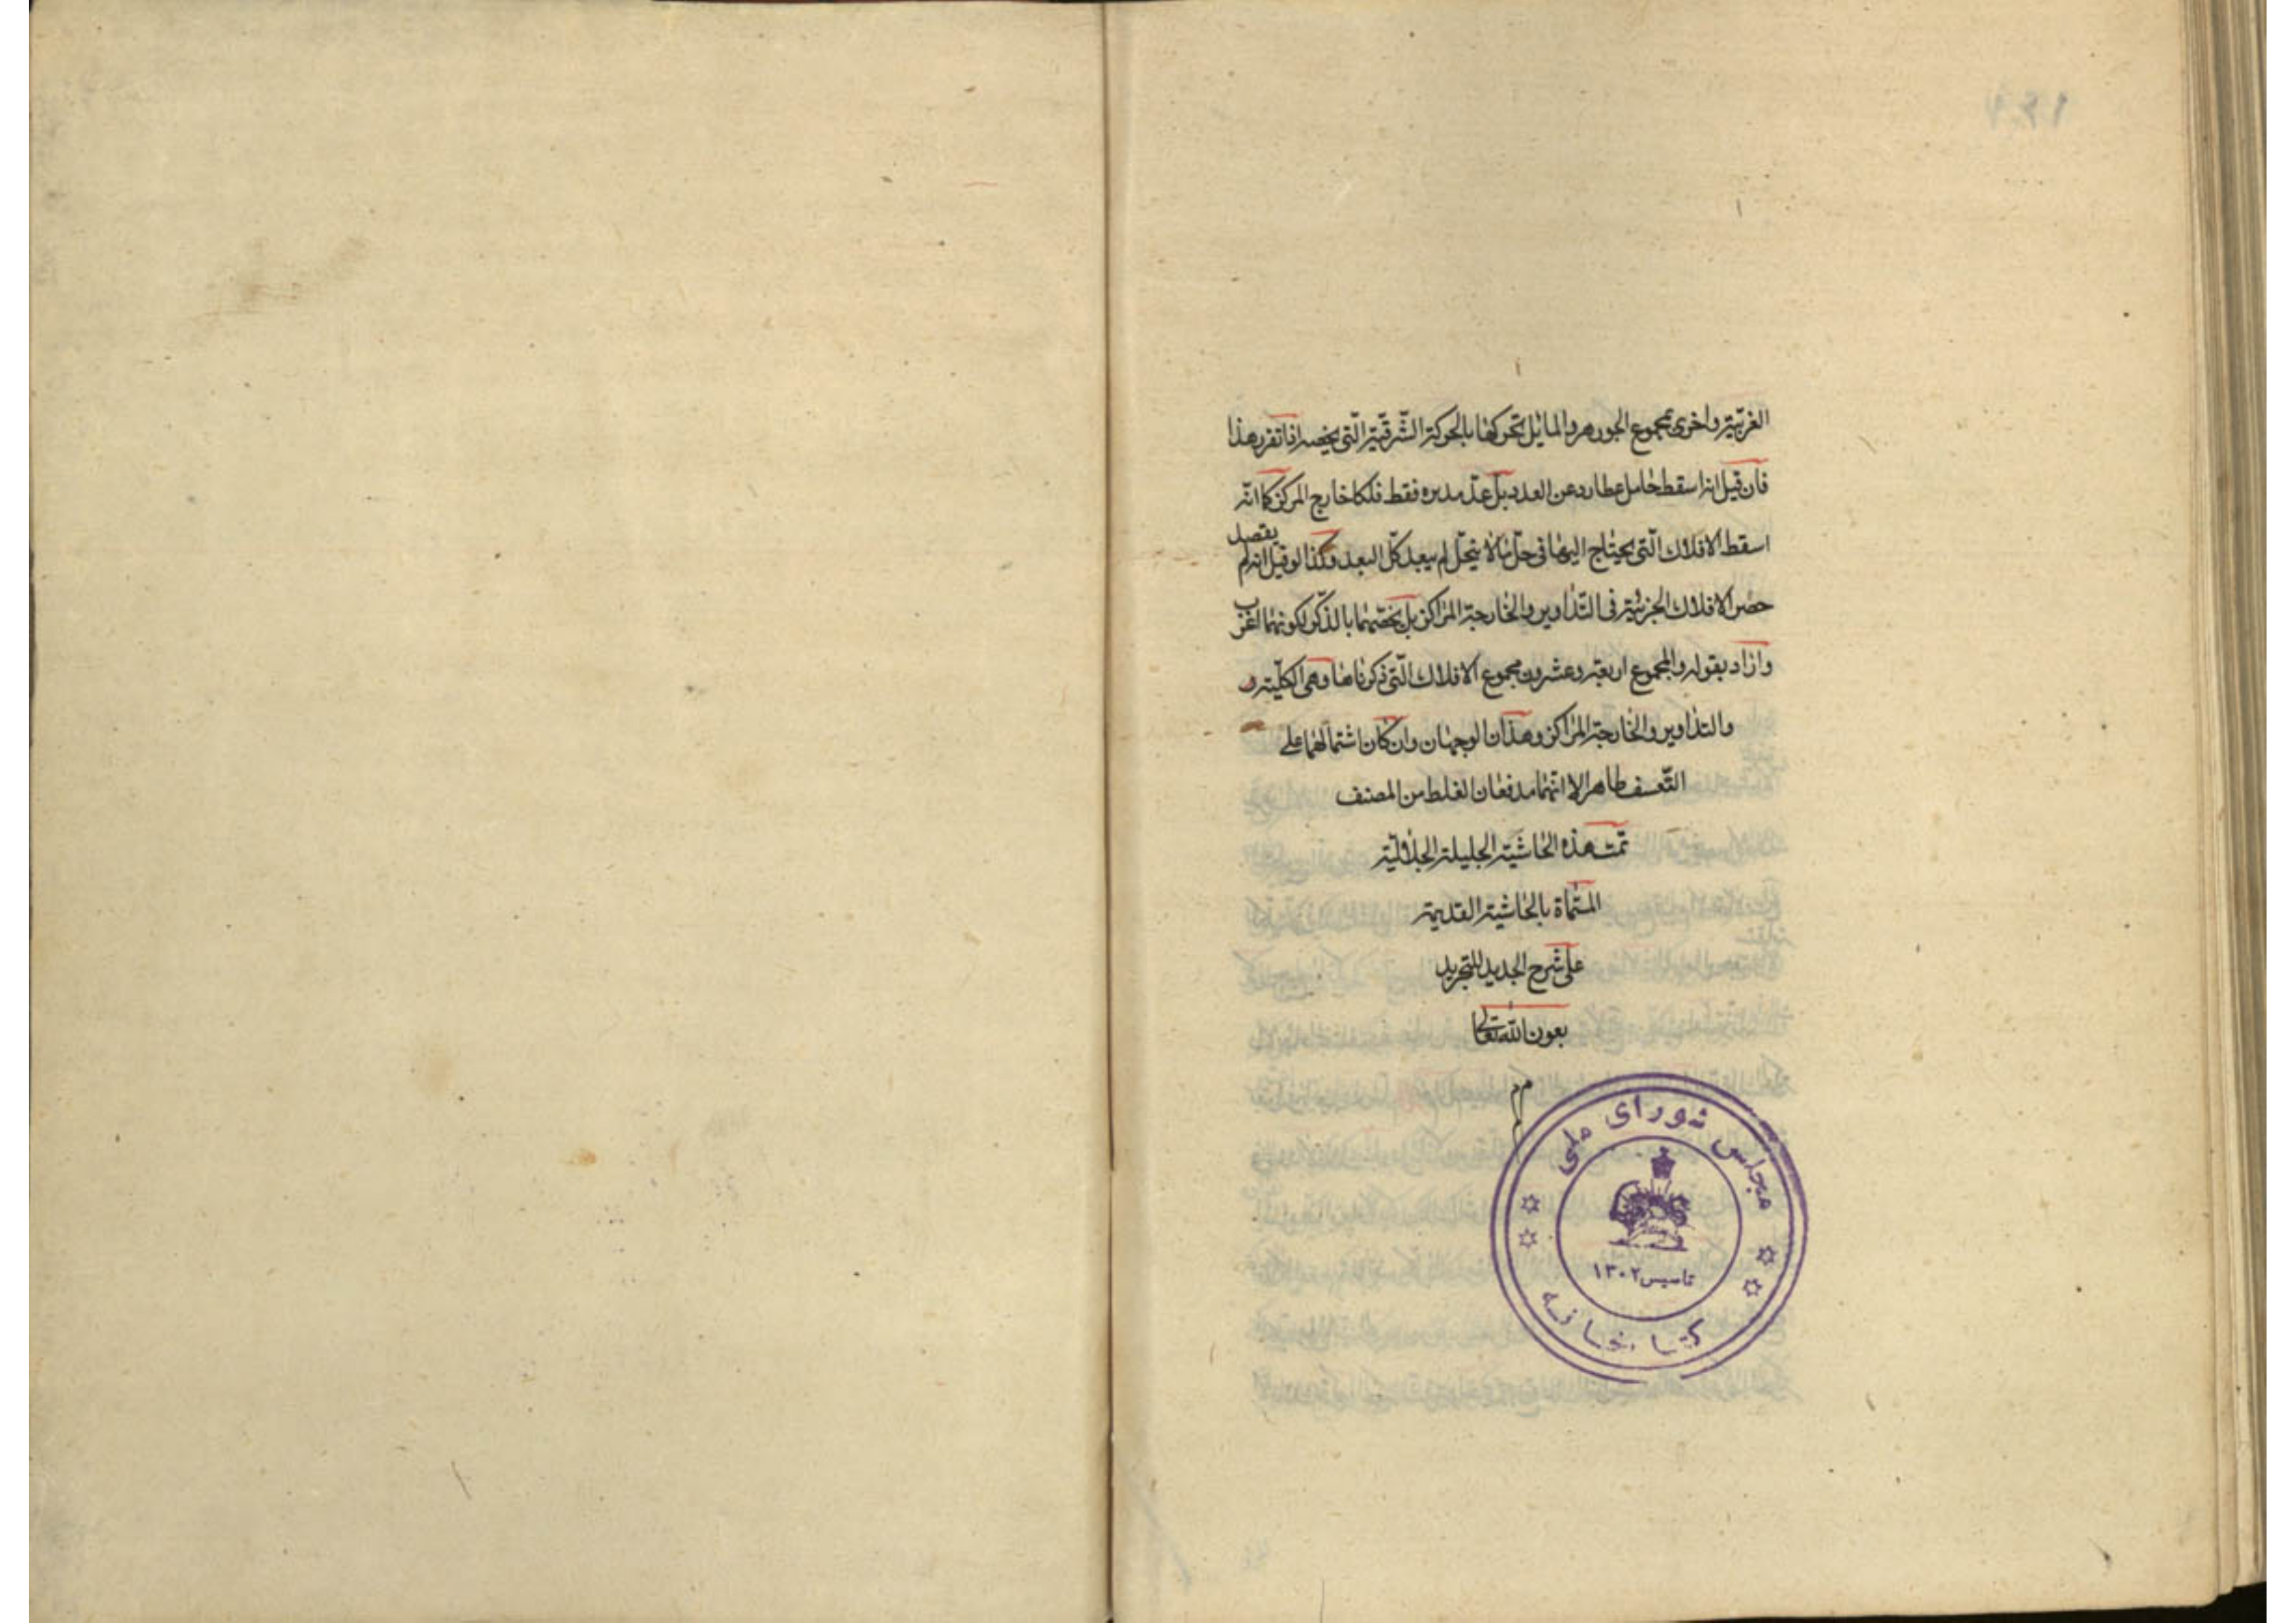 الغربيّة واخرى لمجموع الجوزهر والمايل تحركها بالحركة الشّرقيّة الّتى يخصه اذا تقرر هذا
فان قيل انه اسقط حامل عطارد عن العدد بل عدّ مديره فقط فلكا خارج المركز كما انّه
اسقط الافلاك الّتى يحتاج اليها فى حلّ ما لا ينحلّ لم يبعد كلّ البعد وكذا لو قيل انه لم يقصد
حصر الافلاك الجزئيّة فى التّداوير والخارجة المراكز بل يخصّهما بالذّكر لكونهما اغرب
واراد بقوله والمجموع اربعة وعشرون مجموع الافلاك الّتى ذكرناها وهى الكلّية و
والتداوير والخارجة المراكز وهذان الوجهان وان كان اشتمالهما على
التّعسف ظاهرا الا انّهما مدفعان الغلط من المصنف
تمّت هذه الحاشية الجليلة الجلاليّة
المسّماة بالحاشية القديمة
على شرح الجديد للتجريد
بعون الله تعالى
مجلس شورای ملی
تاسیس ۱۳۰۲
کتابخانه